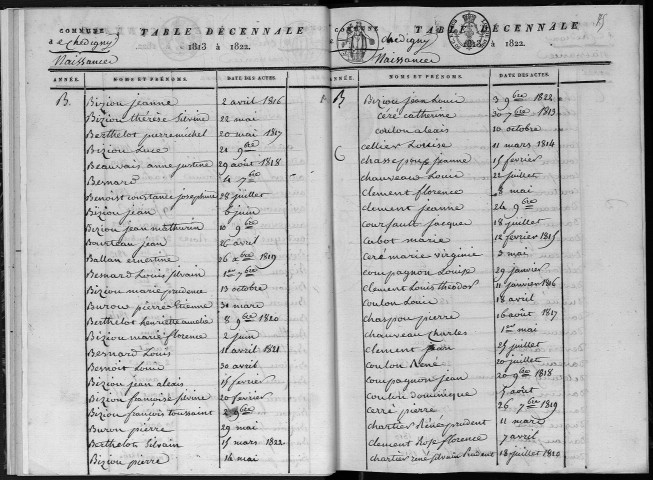 COMMUNE
TABLE DÉCENNALE
de Chédigny
1813 à 1822.
Naissances
ANNÉE. NOMS ET PRÉNOMS. DATE DES ACTES.
B. Biziou jeanne 2 avril 1816
Biziou thérèse Silvine 22 mai
Berthelot pierre michel 20 mai 1817
Biziou Luce 21 9bre
Beauvais anne justine 29 août 1818
Besnard 14 7bre
Benoist constance josephine 28 juillet
Biziou jean 6 juin
Biziou jean mathurin 10 9bre
Bourteau jean 26 avril
Ballan ernestine 26 xbre 1819
Besnard Louis Silvain 1er 7bre
Biziou marie prudence 13 octobre
Burou pierre Etienne 31 mars
Berthelot henriette amelie 8 9bre 1820
Biziou marie florence 2 juin
Besnard Louis 11 avril 1821
Benoit Louis 30 avril
Biziou jean alexis 15 fevrier
Biziou françoise silvine 20 fevrier
Biziou françois toussaint 2 9bre
Buron pierre 29 mai
Berthelot Silvain 15 mars 1822
Biziou pierre 14 mai
COMMUNE
TABLE DÉCENNALE
de Chédigny
1813 à 1822.
Naissances
ANNÉE. NOMS ET PRÉNOMS. DATE DES ACTES.
B Biziou jean Louis 3 9bre 1822
céré catherine 30 7bre 1813
coulon alexis 10 octobre
cellier Louise 11 mars 1814
C jeanne 15 fevrier
chauveau Louis 22 juillet
clement florence 8 mai
clement jeanne 24 9bre
courfaut jacques 18 juillet
cabot marie 12 fevrier 1815
ceré marie virginie 3 mai
coupagnon Louise 29 janvier
clement Louis théodore 11 janvier 1816
coulon Louis 18 avril
chaspou pierre 16 août 1817
chauveau charles 1er mai
clement jean 25 juillet
coulon René 20 juillet
coupagnon jean 20 9bre 1818
coulon dominique 5 août
cerré pierre 26 7bre 1819
chartier Réné prudent 11 mars
clement Rose florence 7 avril
chartier rené silvain Prudent 18 juillet 1820